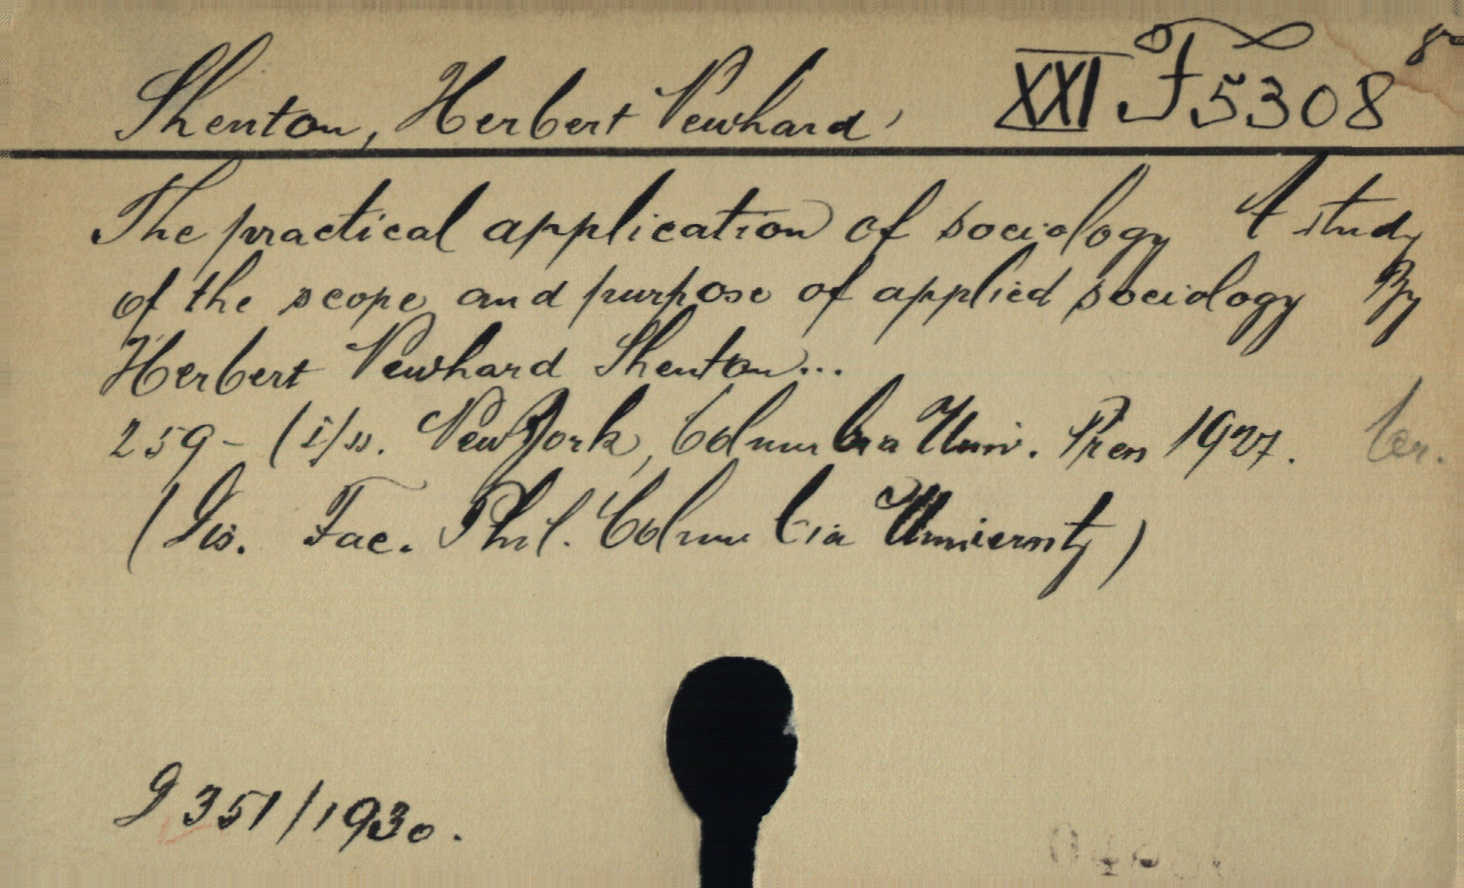 Shenton, Herbert Newhard XXI F 5308 8
The practical application of sociology A study
of the scope and purpose of applied sociology By
Herbert Newhard Shenton...
259 - (i) ss. New York, Columbia Univ. Press 1927.
(Dis. Fac. Phil. Columbia University)
D 351/1930.